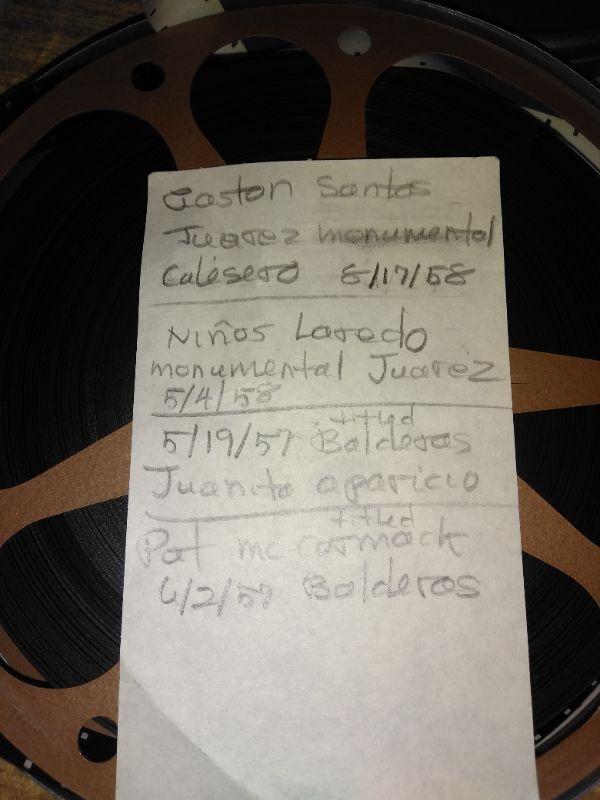 Gaston Santos
Juarez monumental
Calesero 8/17/58
Niños Laredo
monumental Juarez
5/4/58
titled
5/19/57 Balderas
Juanito aparicio
titled
Pat mccormack
6/2/57 Balderas